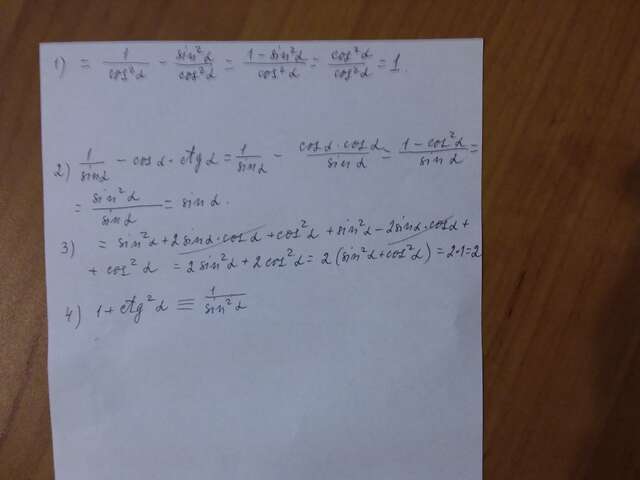 1) = 1/cos²α - sin²α/cos²α = 1-sin²α/cos²α = cos²α/cos²α = 1.
2) 1/sinα - cosα·ctgα = 1/sinα - cosα·cosα/sinα = 1-cos²α/sinα =
= sin²α/sinα = sinα.
3) = sin²α + 2sinα·cosα + cos²α + sin²α - 2sinα·cosα +
+ cos²α = 2sin²α + 2cos²α = 2(sin²α+cos²α) = 2·1=2
4) 1 + ctg²α = 1/sin²α